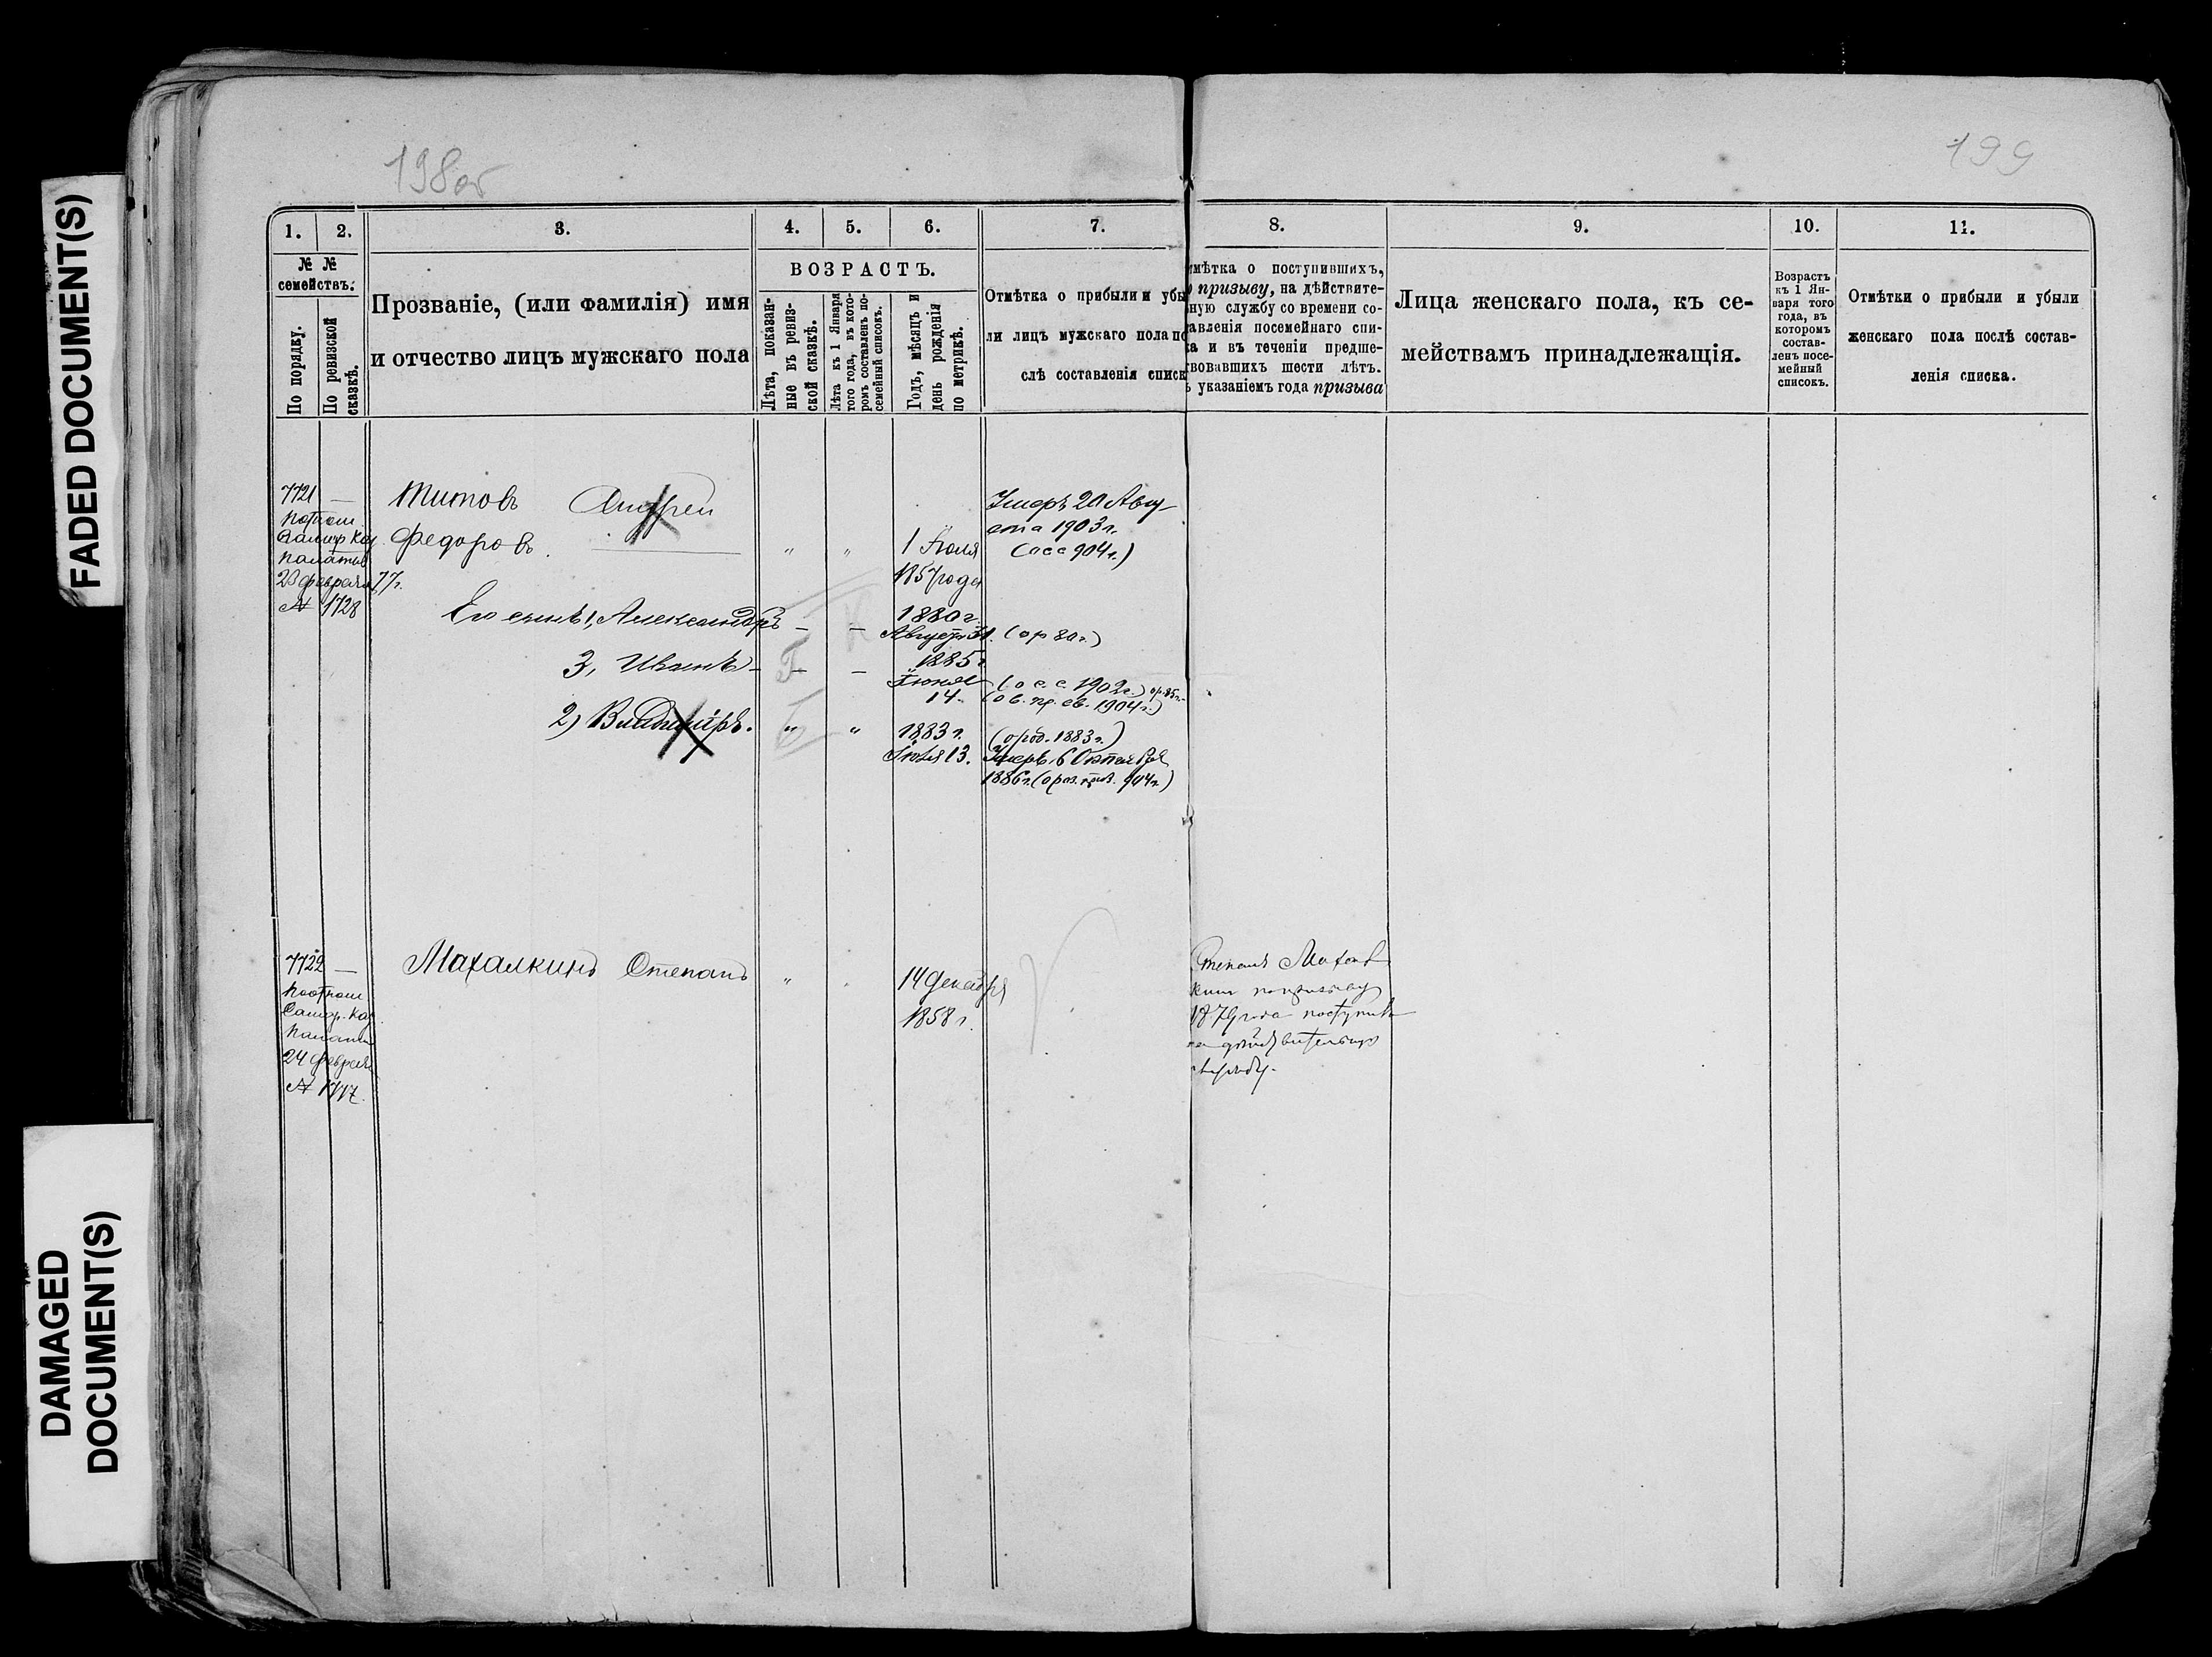 FADED DOCUMENT(S)
DAMAGED
DOCUMENT(S)
198об
199
1. 2. 3. 4. 5. 6. 7. 8. 9. 10. 11.
№ №
семействъ.
По порядку.
По ревизской
сказкѣ.
Прозваніе, (или фамилія) имя
и отчество лицъ мужскаго пола
ВОЗРАСТЪ.
Лѣта, показан-
ные въ ревиз-
ской сказкѣ.
Лѣта къ 1 Января
того года, въ кото-
ромъ составленъ по-
семейный списокъ.
Годъ, мѣсяцъ и
день рожденія
по метрикѣ.
Отмѣтка о прибыли и убы
ли лицъ мужскаго пола по
слѣ составленія списк
мѣтка о поступившихъ,
призыву, на дѣйствите-
ную службу со времени со-
авленія посемейнаго спи-
ка и въ теченіи предше-
твовавшихъ шести лѣтъ.
ъ указаніемъ года призыва
Лица женскаго пола, къ се-
мействамъ принадлежащія.
Возрастъ
къ 1 Ян-
варя того
года, въ
которомъ
состав-
ленъ посе-
мейный
списокъ.
Отмѣтки о прибыли и убыли
женскаго пола послѣ состав-
ленія списка.
7721 —
Самар. Каз.
палаты
23 февраля 77г.
№ 1728
Титовъ Андрей
Федоровъ.
" "
1 Іюля
1857 года
Умеръ 20 Авгу
ста 1903 г.
(о с с 904 г.)
Его сынъ 1, Александръ — —
1880 г.
Августа 31. (о р 80 г.)
3, Иванъ — — —
1885 г.
Іюня
14.
(о с. с. 1902 г.) о р. 85 г.
(о в. пр. св. 1904 г.)
2) Владиміръ. " "
1883 г.
Іюля 13.
(о род. 1883 г.)
Умеръ 6 Октября
1886 г. (о раз. прив. 904 г.)
7722 —
Самар. Каз.
Палаты
24 февраля
№ 1777.
Махалкинъ Степанъ "
14 Декабря
1858 г.
Степанъ Махал
кин по призыву
1879 года поступилъ
на действительную
службу.